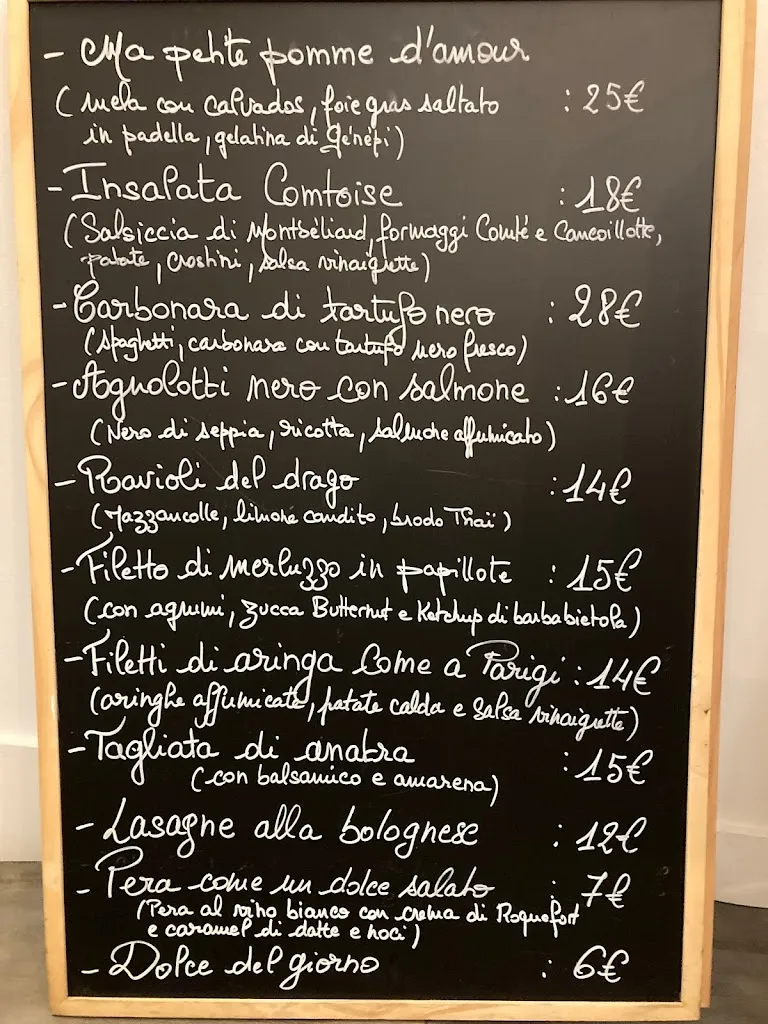 - Ma petite pomme d'amour
(mela con calvados, foie gras saltato : 25€
in padella, gelatina di génépi)
- Insalata Comtoise : 18€
(Salsiccia di Montbéliard, formaggi Comté e Cancoillotte,
patate, crostini, salsa vinaigrette)
- Carbonara di tartufo nero : 28€
(spaghetti, carbonara con tartufo nero fresco)
- Agnolotti nero con salmone : 16€
(Nero di seppia, ricotta, salmone affumicato)
- Ravioli del drago : 14€
(Mazzancolle, limone candito, brodo Thaï)
- Filetto di merluzzo in papillote : 15€
(con agrumi, zucca Butternut e Ketchup di barbabietola)
- Filetti di aringa come a Parigi : 14€
(aringhe affumicate, patate calda e salsa vinaigrette)
- Tagliata di anatra : 15€
(con balsamico e amarena)
- Lasagne alla bolognese : 12€
- Pera come un dolce salato : 7€
(Pera al vino bianco con crema di Roquefort
e caramel di datte e noci)
- Dolce del giorno : 6€